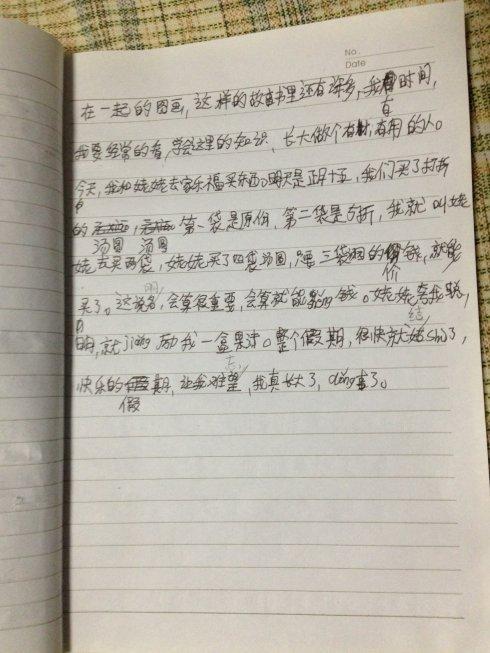 No.
Date
在一起的图画,这样的故事书里还有许多,我有时间,
我要经常的看,学会这里的知识,长大做个有用的人。
今天,我和姥姥去家乐福买东西。明天是正月十五,我们买了打折
的汤圆,汤圆第一袋是原价,第二袋是5折,我就叫姥
姥去买两袋,姥姥买了四袋汤圆,要三袋的价钱,就能
买了。这说明,会算很重要,会算就能省钱。姥姥夸我聪
明,就jiǎng励我一盒果冻。整个假期,很快就结shù了,
快乐的假期,让我难忘,我真长大了,dǒng事了。